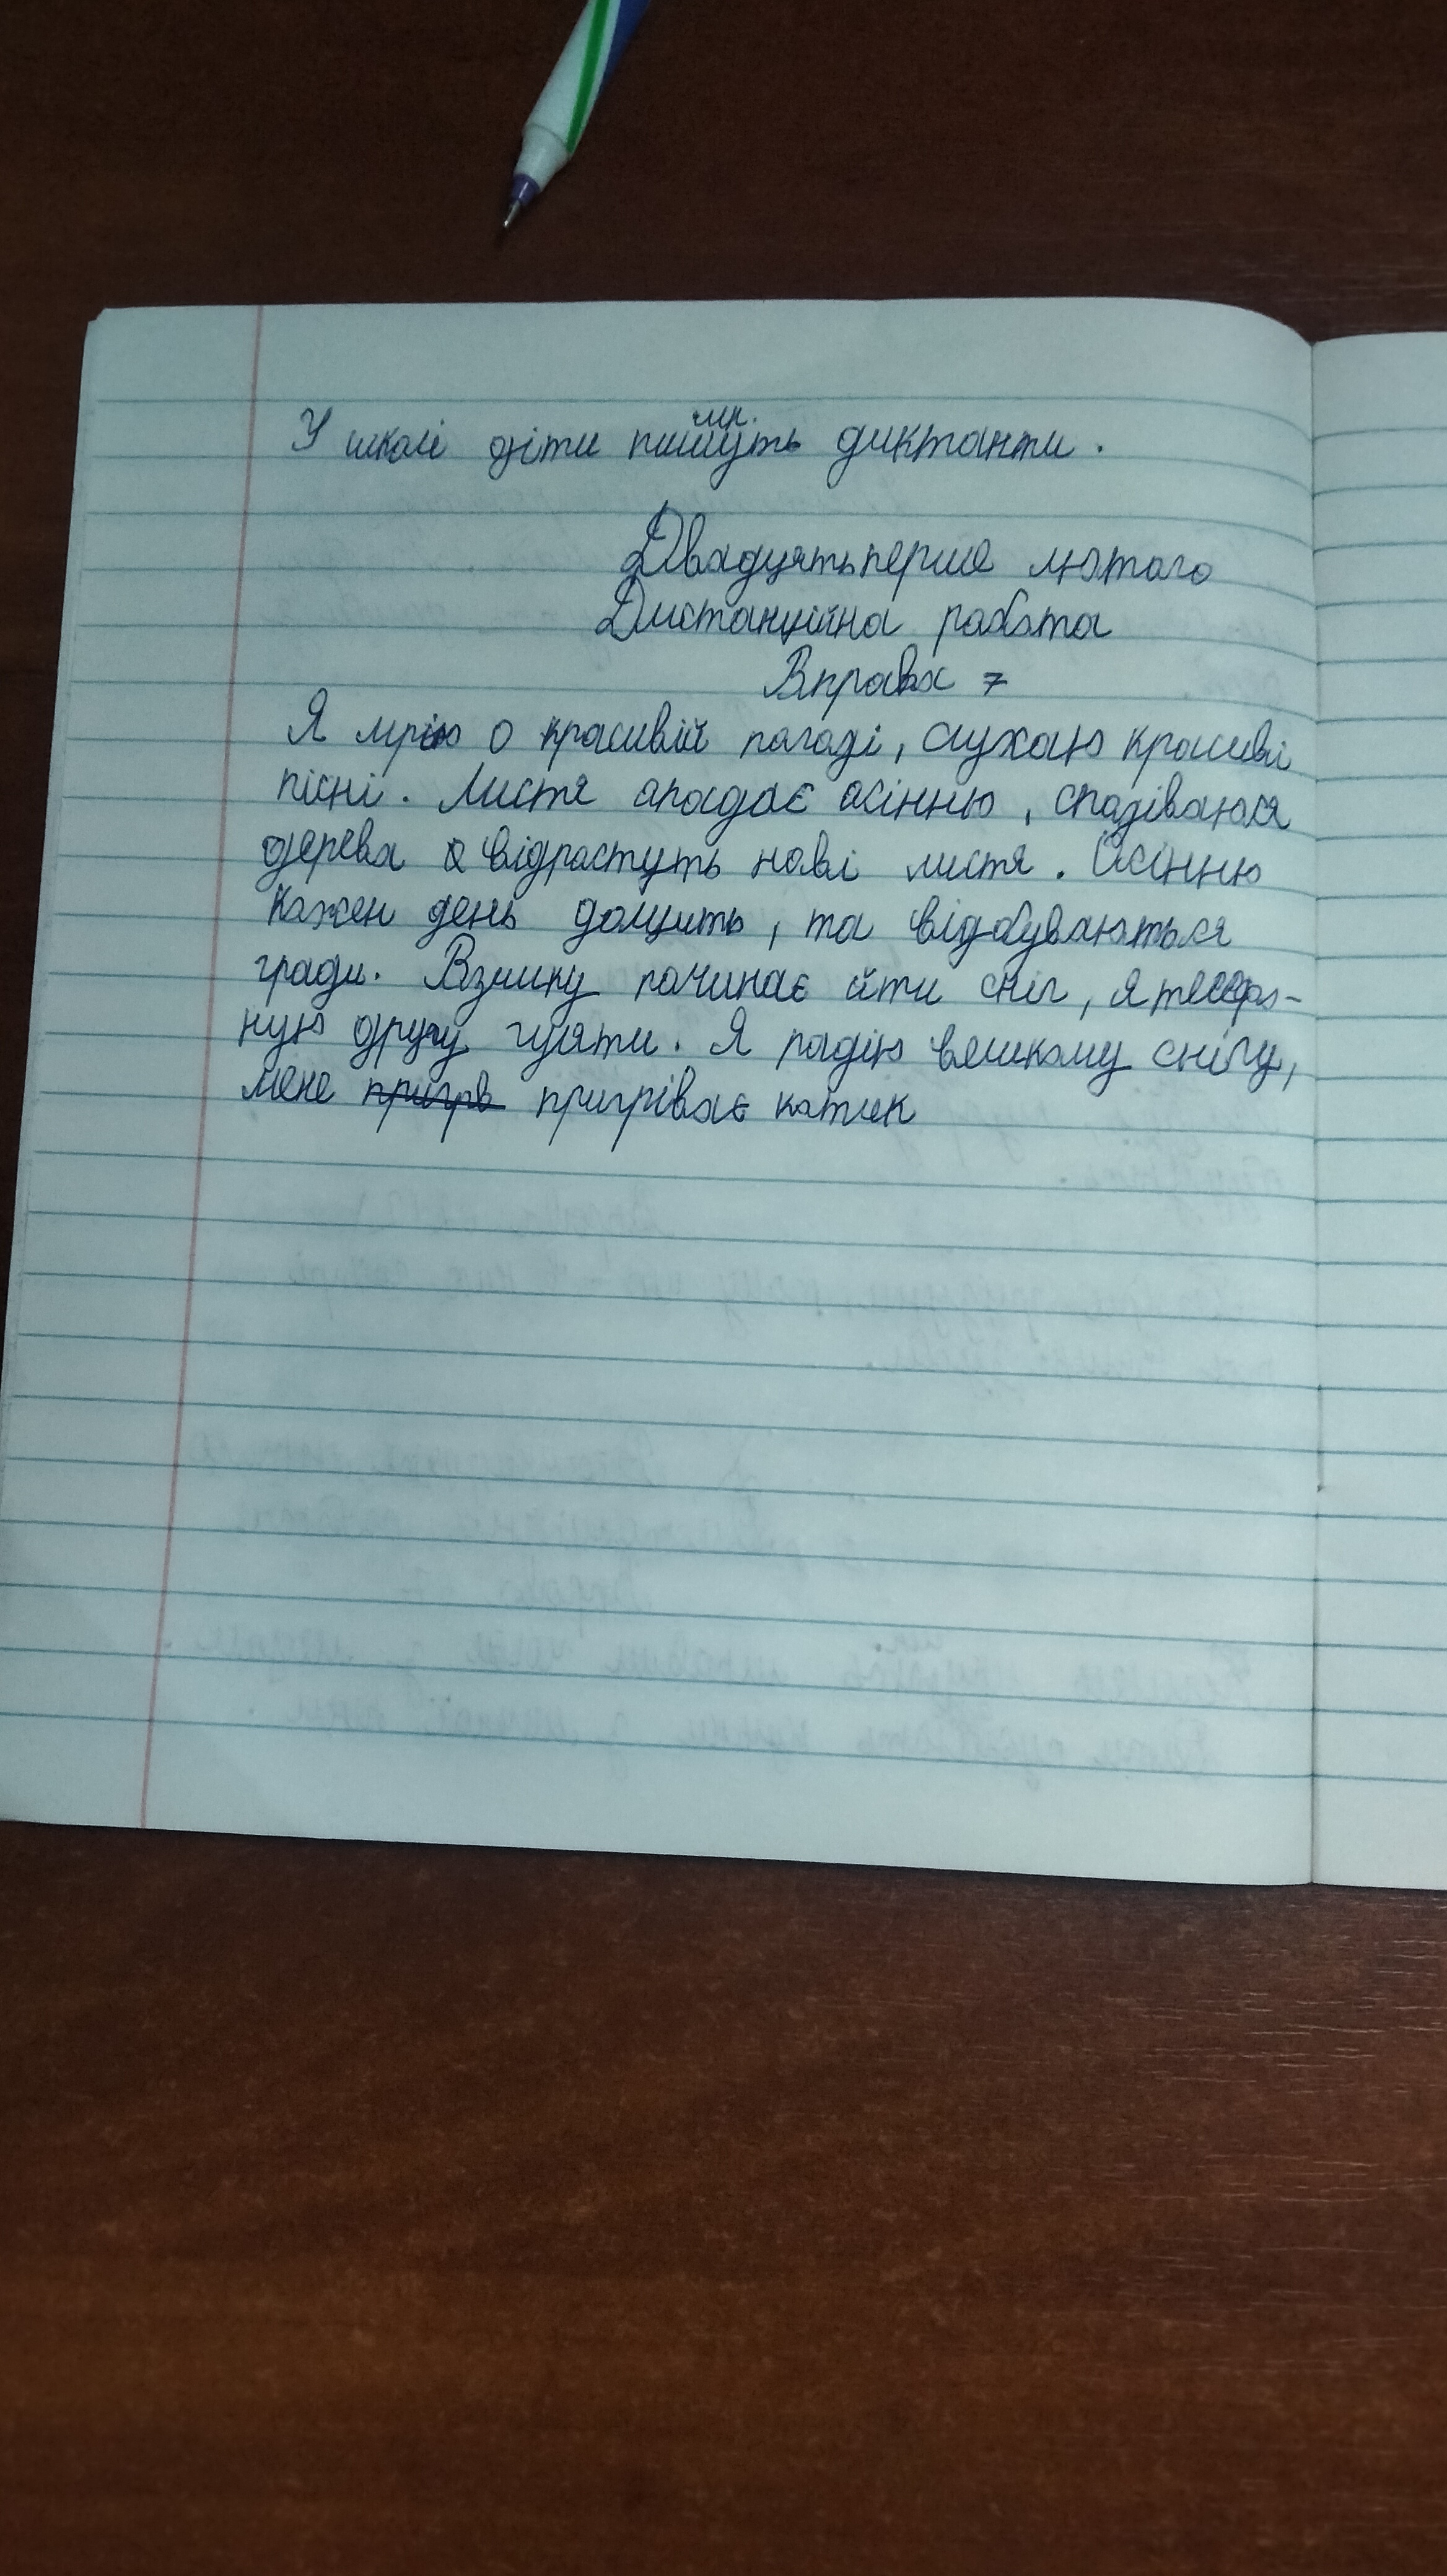 мн.
У школі діти пишуть диктанти.
Двадцять перше лютого
Дистанційна работа
Вправа 7
Я мрію о красивій погоді, слухаю красиві
пісні. Листя опадає осінню, сподіваюся
дерева відрастуть нові листя. Осінню
кажен день дощить, та відбуваються
гради. Взимку починає йти сніг, я
ную другу гуляти. Я радію великому снігу,
мене пригрів пригріває котик